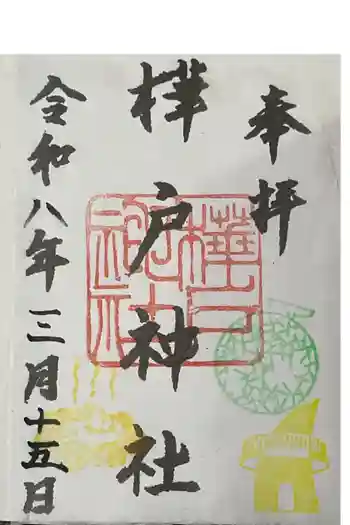 奉拝
樺戸神社
令和八年三月十五日
樺戸神社